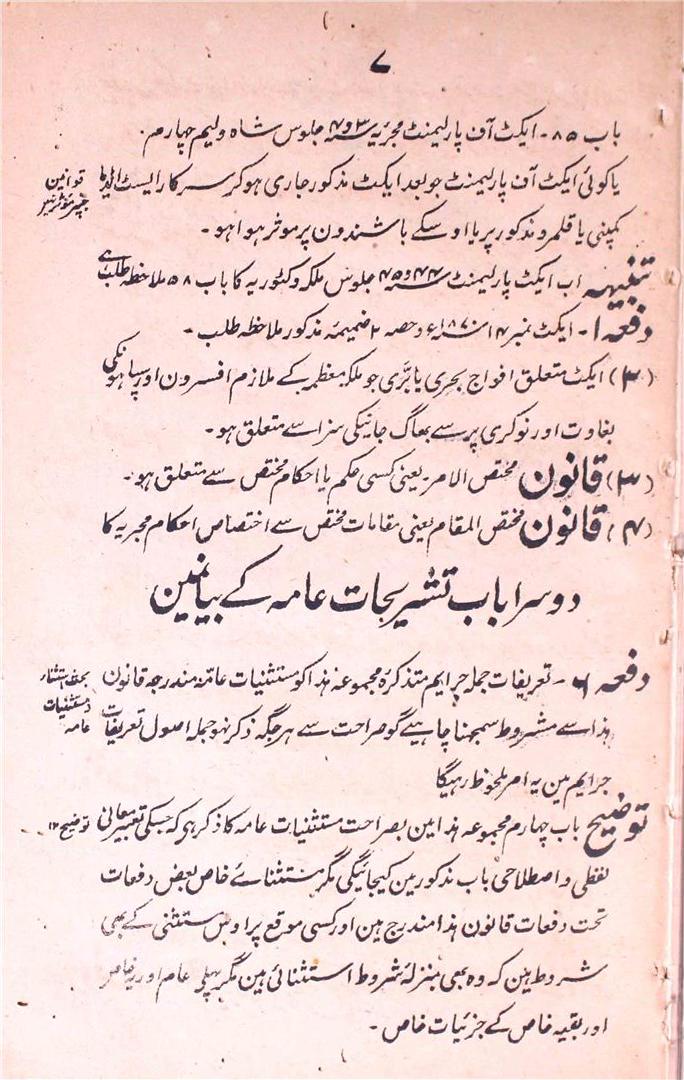 ۷
باب ۸۵ - ایکٹ آف پارلیمنٹ مجریہ سنہ ۳ و ۴ جلوس شاہ ولیم چہارم
یا کوئی ایکٹ آف پارلیمنٹ جو بعد ایکٹ مذکور جاری ہو کر سرکار ایسٹ انڈیا
قوانین
کمپنی یا قلمرو مذکور پر یا اوسکے باشندون پر موثر ہوا ہو -
تنبیہہ اب ایکٹ پارلیمنٹ سنہ ۴۴ و ۴۵ جلوس ملکہ وکٹوریہ کا باب ۵۸ ملاحظہ طلب ہے
دفعہ ۱ - ایکٹ نمبر ۱۴ سنہ ۱۸۷۰ء و حصہ ۲ ضمیمہ مذکور ملاحظہ طلب -
(۳) ایکٹ متعلق افواج بحری یا بَرّی جو ملکہ معظمہ کے ملازم افسرون اور سپاہیونکی
بغاوت اور نوکری پر سے بھاگ جانیکی سزا سے متعلق ہو -
(۳) قانون مختص الامر - یعنی کسی حکم یا احکام مختص سے متعلق ہو -
(۴) قانون مختص المقام یعنی مقامات مختص سے اختصاص احکام مجریہ کا
دوسرا باب تشریحات عامہ کے بیانمین
دفعہ ۶ - تعریفات جملہ جرایم متذکرہ مجموعہ ہذا کو مستثنیات عامہ مندرجہ قانون
ہذا سے مشروط سمجھنا چاہیے گو صراحت سے ہر جگہ ذکر نہو جملہ اصول تعریفات
مستثنیات
عامہ
جرایم مین یہ امر ملحوظ رہیگا
توضیح باب چہارم مجموعہ ہذا مین بصراحت مستثنیات عامہ کا ذکر ہی کہ جسکی تعبیر معانی
توضیح ۱۲
لفظی و اصطلاحی باب مذکور مین کیجائیگی مگر مستثناے خاص بعض دفعات
تحت دفعات قانون ہذا مندرج ہین اور کسی موقع پر اوس مستثنی کے بھی
شروط ہین کہ وہ بھی بمنزلۂ شروط استثنائی ہین مگر پہلی عام اور یہ خاص
اور بقیہ خاص کے جزئیات خاص -